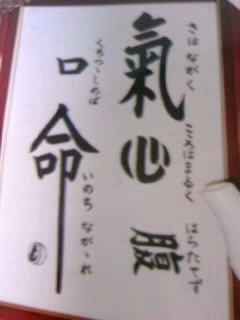 氣
きは ながく
心
こころはまるく
腹
はらたてず
口
くちつゝしめば
命
いのち ながゝれ